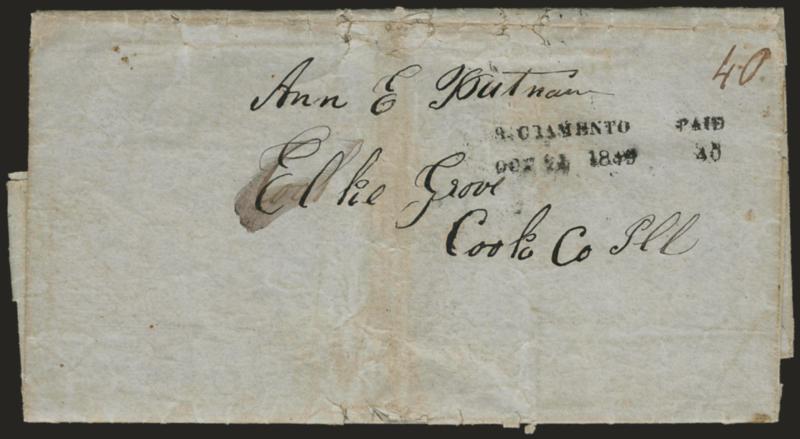 40.
Ann E Putnam
SACRAMENTO PAID
OCT 21 1849 40
Elke Grove
Cook Co Ill